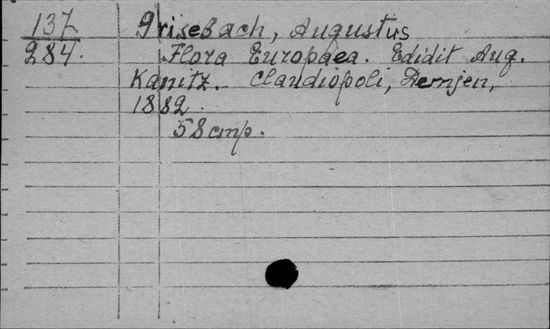 137 Grisebach, Augustus
284. Flora Europaea. Edidit Aug.
Kanitz. Claudiopoli, Demjen,
1882.
58 cmp.